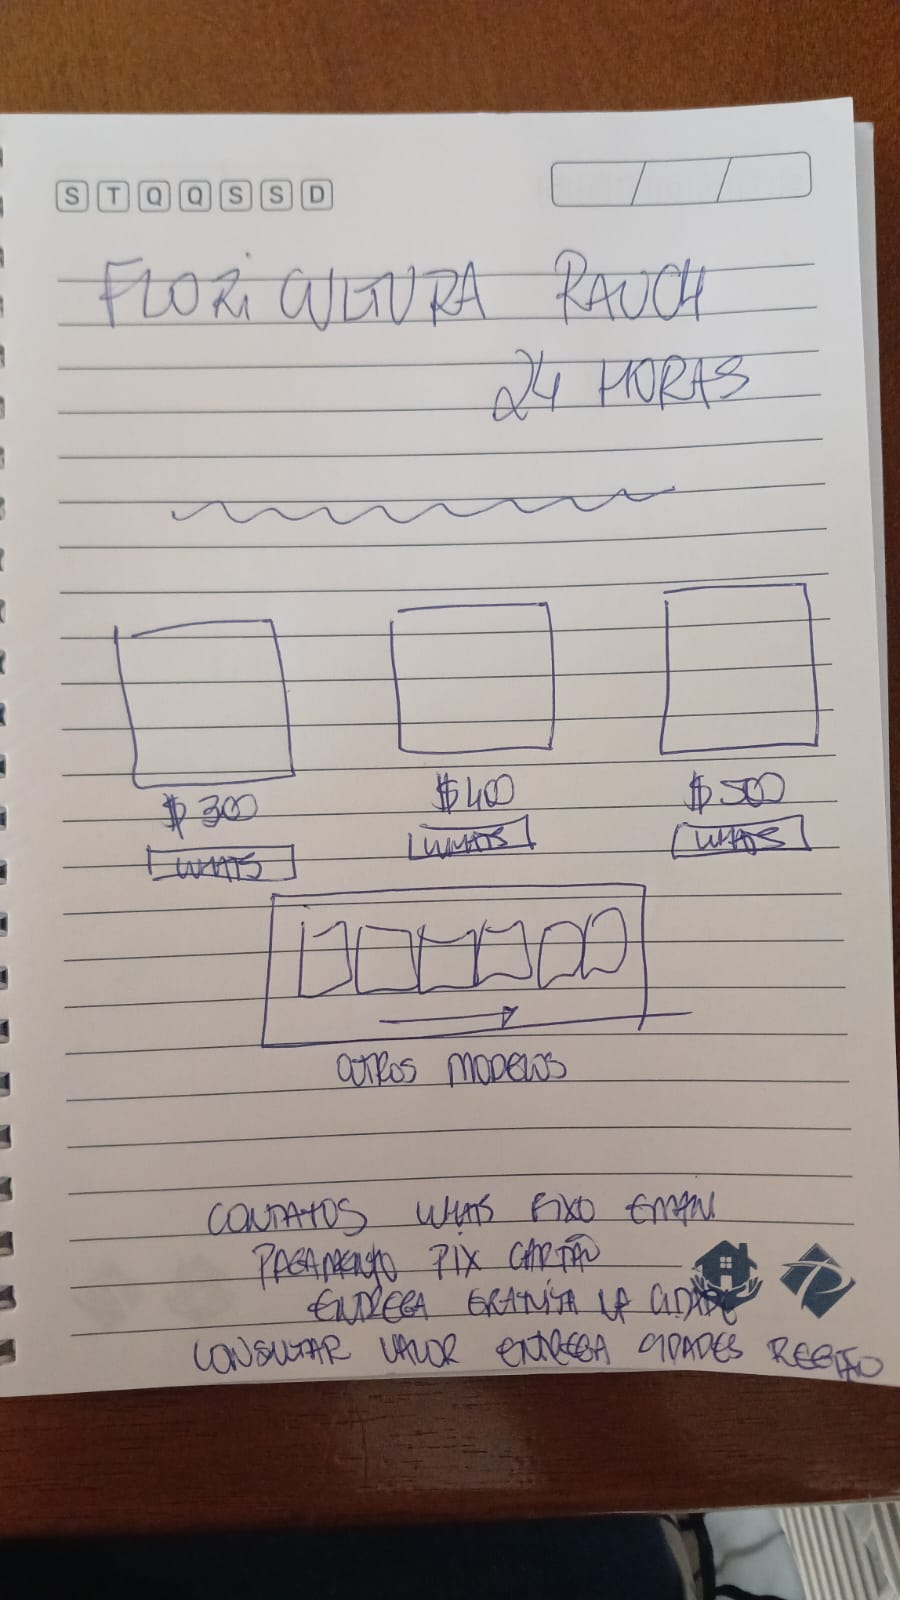 S T Q Q S S D
FLORICULTURA RAUCH
24 HORAS
$300 $400 $500
WHATS WHATS WHATS
OUTROS MODELOS
CONTATOS WHATS FIXO EMAIL
PAGAMENTO PIX CARTÃO
ENTREGA GRATUITA NA CIDADE
CONSULTAR VALOR ENTREGA CIDADES REGIÃO